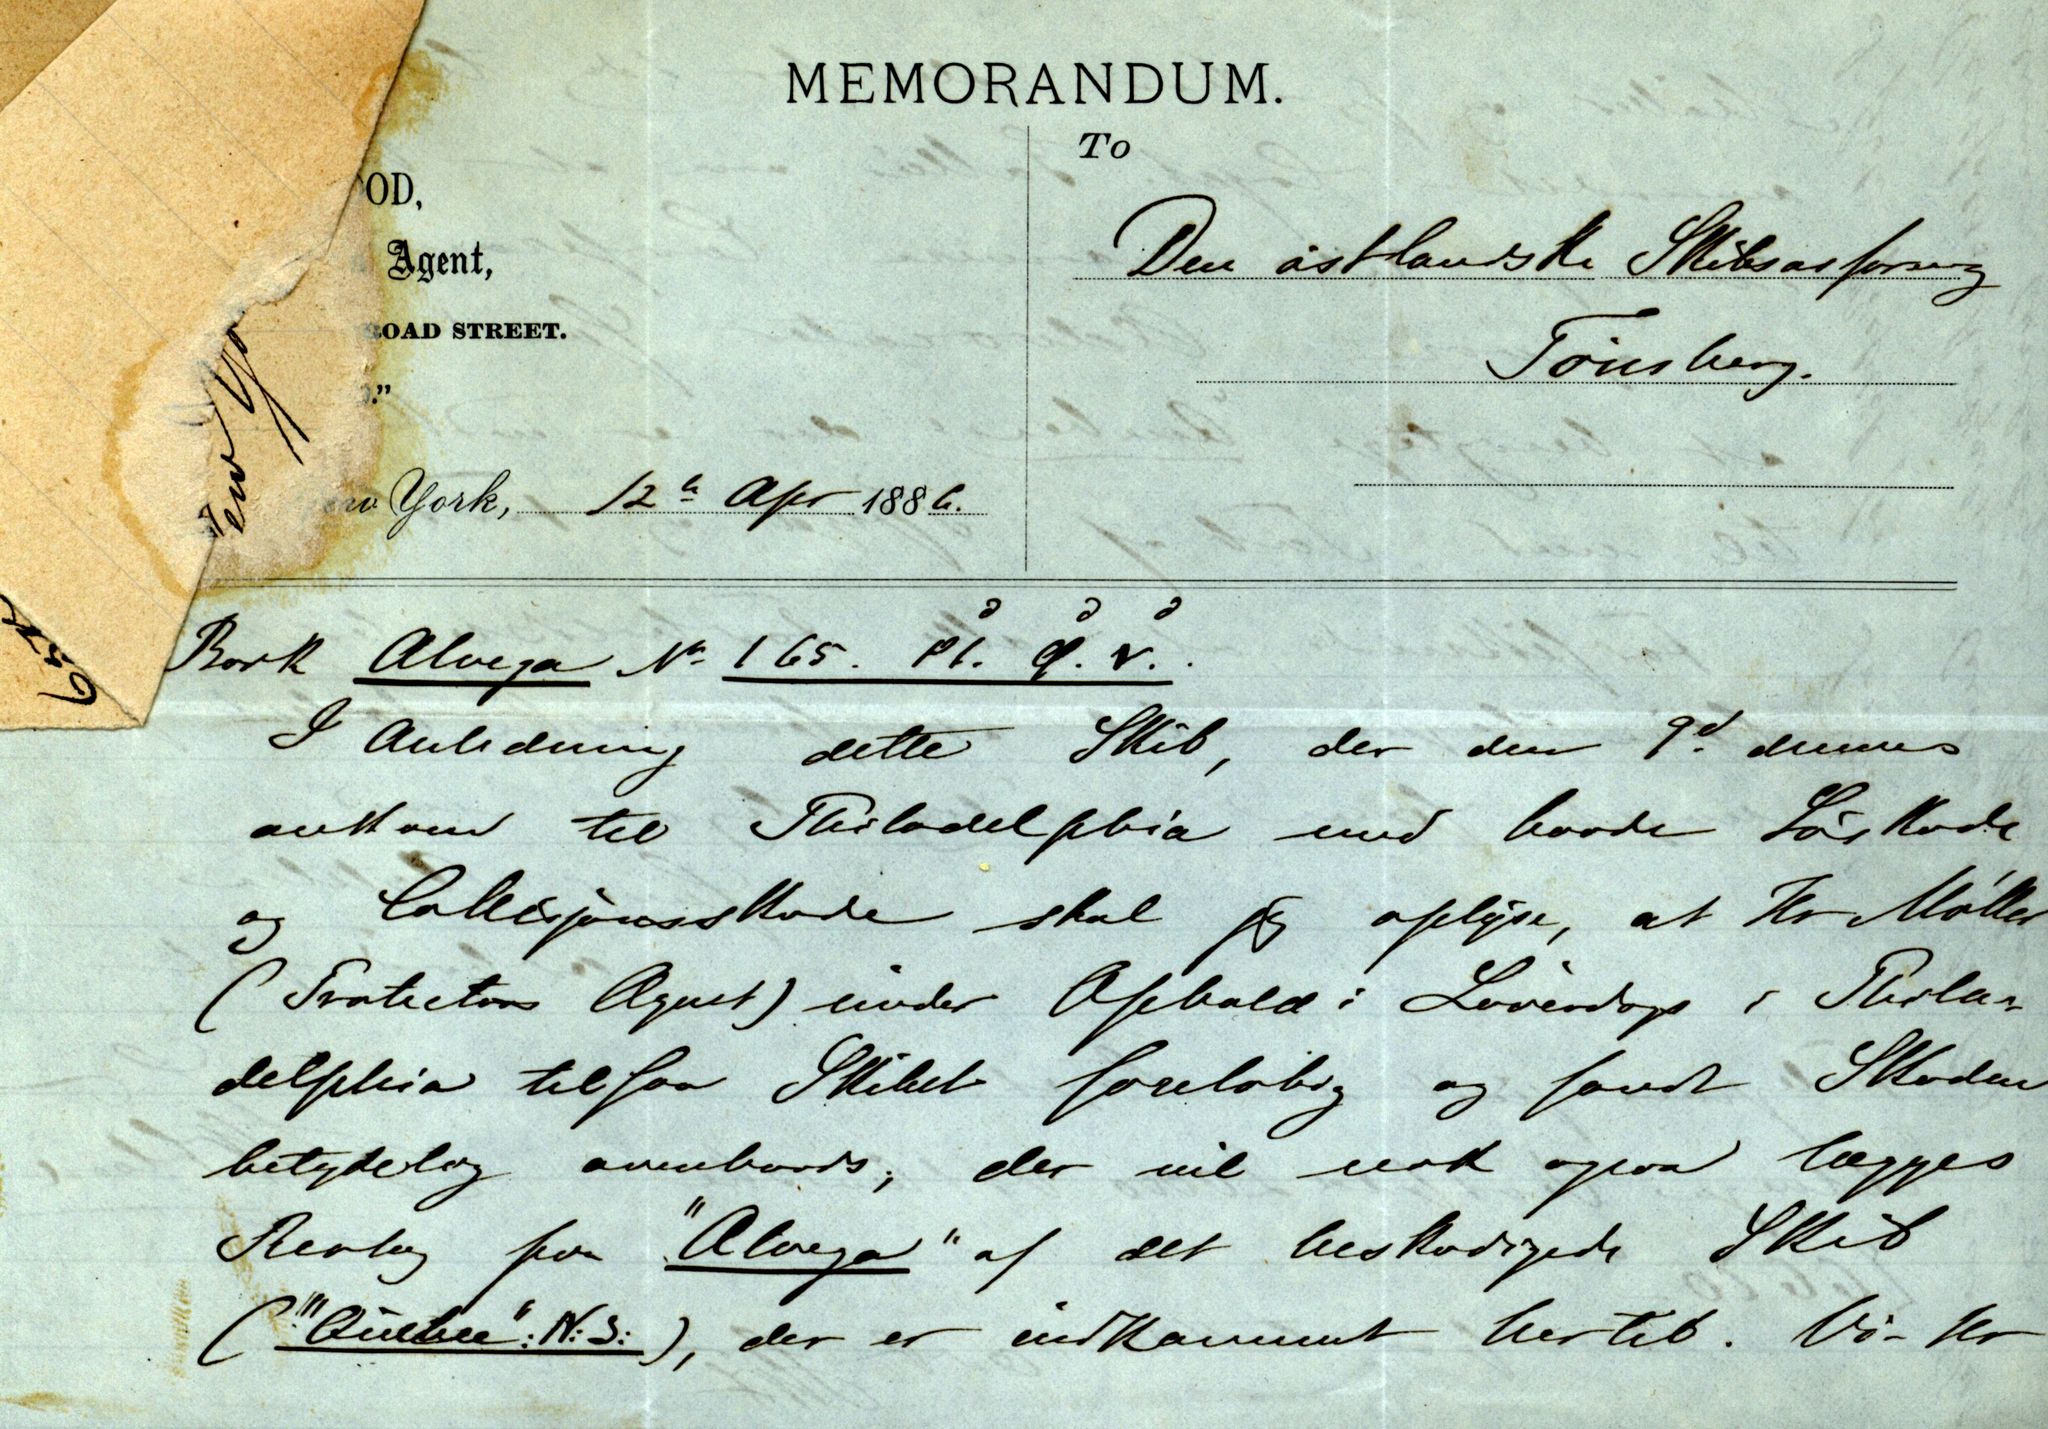 MEMORANDUM.
To
OD,
Agent,
ROAD STREET.
."
ew Yo
New York, 12th Apr 1886.
Den östlandske Skibsassforeng
Tönsberg.
Bark Alvega No 165. Pl. q. v.
I Anledning dette Skib, der den 9d. dennes
ankom til Philadelphia med baade Söskade
og Collisjonsskade skal jeg oplyse, at Hr Möller
(Protectors Agent) under Ophold i Löverdags i Phila-
delphia tilsaa Skibet foreløbig og fandt Skaden
betydelig ovenbords; der vil nok ogsaa lægges
Beslag paa "Alvega" af det beskadigede Skib
("Quebec": N: S:), der er indkommet hertil. Vi - Hr